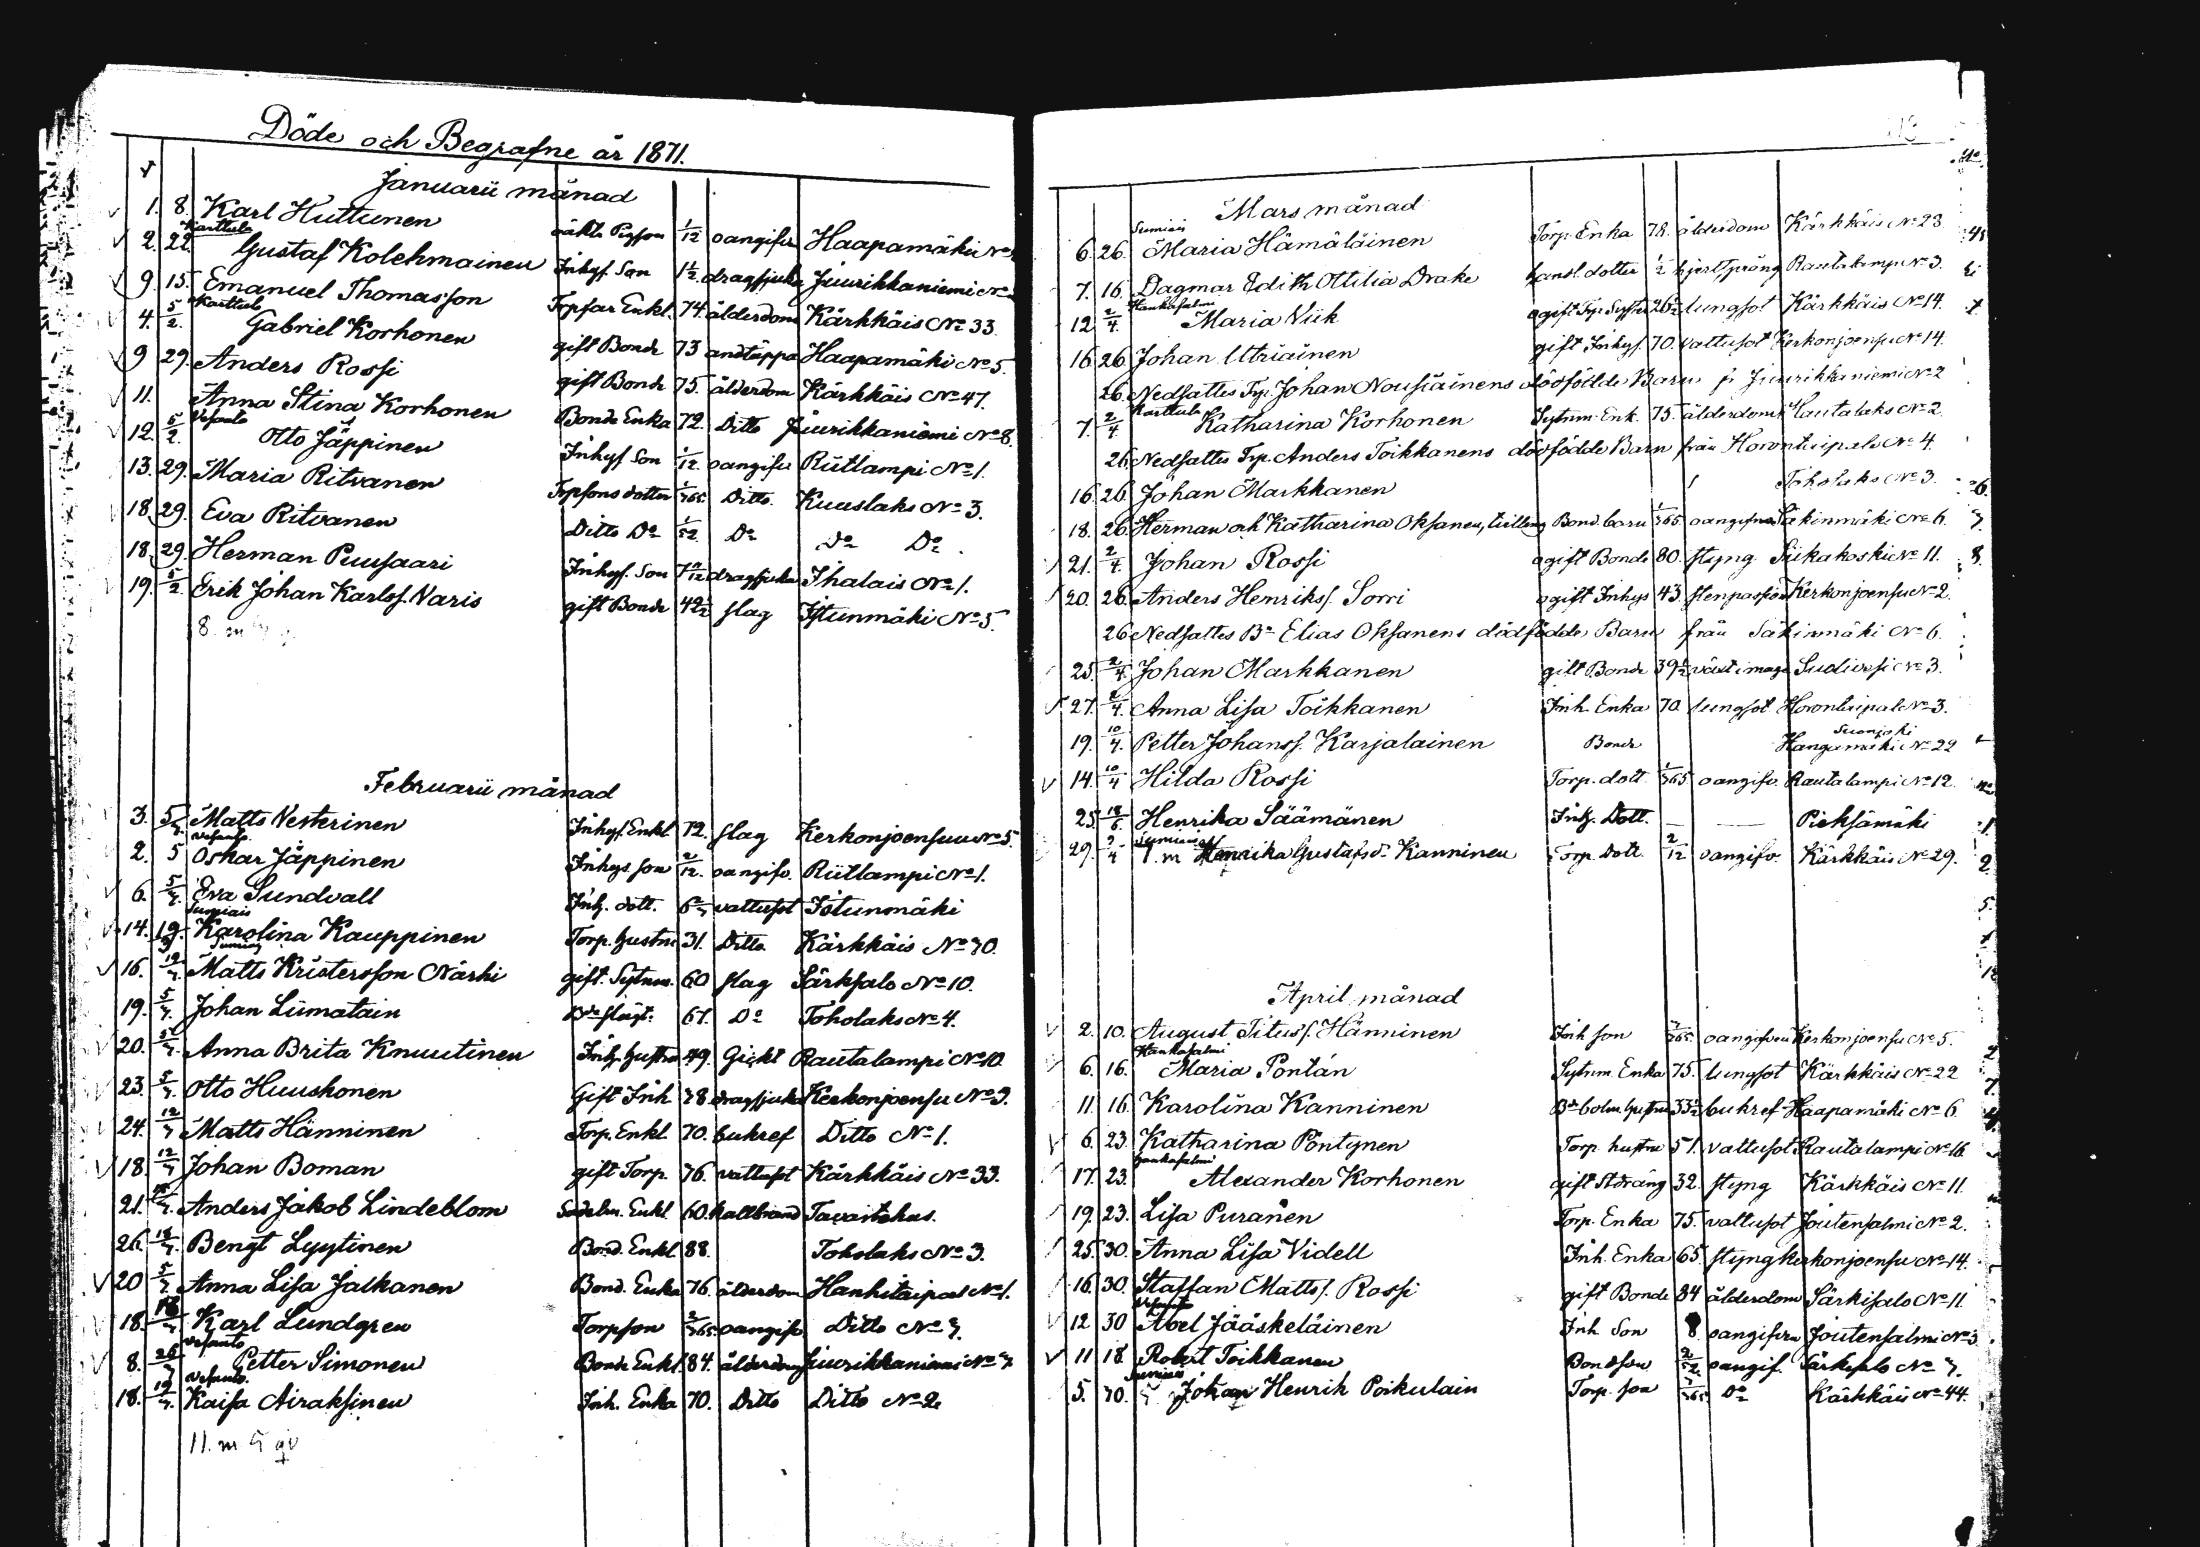 Döde och Begrafne år 1871.
Januarii månad
1. 8. Karl Huttunen oäkta Pigson 1/12 oangifv Haapamäki No
Karttula
2. 22. Gustaf Kolehmainen Inhys. Son 1 1/2 dragsjuka Jiuurikkaniemi No
9. 15. Emanuel Thomasson Torpfar Enkl. 74. ålderdom Kärkkäis No 33.
Karttula
4. 5/2. Gabriel Korhonen gift Bonde 73 andtäppa Haapamäki No 5.
9 29. Anders Rossi gift Bonde 75. ålderdom Kärkkäis No 47.
11. Anna Stina Korhonen Bonde Enka 72. Ditto Jiuurikkaniemi No 8.
Vesanto
12. 5/2. Otto Jäppinen Inhys Son 1/12. oangifv Riitlampi No 1.
13. 29. Maria Ritvanen Torpsons dotter 1/365. Ditto. Kuuslaks No 3.
18. 29. Eva Ritvanen Ditto Do 1/52. Do Do Do.
18. 29. Herman Puusaari Inhys. Son dragsjuka Ihalais No 1.
19. 5/2 Erik Johan Karlss. Naris gift Bonde 42 1/2 slag Istunmäki No 5.
8. m
Februarii månad
3. Matts Vesterinen Inhys Enkl 72. slag Kerkonjoensuu No 5.
Vesanto
2. 5 Oskar Jäppinen Inhys son 2/12. oangifv. Riitlampi No 1.
6. Eva Sundvall Inh. dott. vattusot Istunmäki
Sumiais
14. 19. Karolina Kauppinen Torp. hustru 31. Ditto Kärkkäis No 30.
16. Matts Kristersson Närhi gift. Sytnm. 60 slag Särksalo No 10.
19. Johan Liimatain 67. Do Toholaks No 4.
20. Anna Brita Knuutinen Inh hustru 49. Gickt Rautalampi No 10.
23. Otto Huuskonen Gift Inh 38. dragsjuka Kerkonjoensu No 3.
24. Matts Hänninen Torp. Enkl 70. bukref Ditto No 1.
18 Johan Boman gift Torp. 76. vattusot Kärkkäis No 33.
21. Anders Jakob Lindeblom Sadelm. Enkl. 60. kallbrand Tavastehus.
26. Bengt Lyytinen Bond. Enkl 88. Toholaks No 3.
20 Anna Lisa Jalkanen Bond. Enka 76. ålderdom Hanhitaipal No 1.
18. Karl Lundgren Torpson oangifv Ditto No 3.
Vesanto
8. Petter Simonen Bonde Enkl. 84. ålderdom Jiuurikkaniemi No 3
Vesanto.
18. Kaisa Airaksinen Inh. Enka 70. Ditto Ditto No 2.
11. m 5 qv
Mars månad
Sumiais
6. 26. Maria Hämäläinen Torp. Enka 78. ålderdom Kärkkäis No 23.
7. 16. Dagmar Edith Ottilia Drake dotter 1/2 hjertsprång Rautalampi No 3.
Hankasalmi
12 2/4. Maria Viik ogift Trp Syster 26 1/2 lungsot Kärkkäis No 14.
16. 26 Johan Utriainen gift Inhys. 70. vattusot Kerkonjoensu No 14.
26. Nedsattes Trp. Johan Nousiainens dödfödde Barn fr Jiuurikkaniemi No 2
Karttula
7. 2/4 Katharina Korhonen Sytnm. Enk. 75. ålderdom Hautalaks No 2.
26 Nedsattes Trp. Anders Toikkanens dödfödde Barn från Horontaipale No 4.
16. 26. Johan Markkanen Toholaks No 3.
18. 26. Herman och Katharina Oksanen, tvilling Bond. barn 1/365 oangifna Säkinmäki No 6.
21. 2/4. Johan Rossi ogift Bonde 80. styng Siikakoski No 11.
20. 26. Anders Henrikss. Sorri ogift Inhys 43. stenpassion Kerkonjoensu No 2.
26 Nedsattes Bn Elias Oksanens dödfödde Barn från Säkinmäki No 6.
25. 2/4. Johan Markkanen gift Bonde 39 1/2 växt i mage Sudivesi No 3.
27. 2/4. Anna Lisa Toikkanen Inh. Enka 70. lungsot Horontaipale No 3.
19. 10/4. Petter Johanss. Karjalainen Bonde Suonjoki Hangamäki No 22
14. 10/4 Hilda Rossi Torp. dott. 1/365 oangifv. Rautalampi No 12.
25. 18/6. Henrika Säämänen Inh. Dott. — — Pieksämäki
29. Henrika Gustafsdr Kanninen Torp. Dott. 2/12 oangifv. Kärkkäis No 29.
April månad
2. 10. August Tituss. Hänninen Inh son oangifven Kerkonjoensu No 5.
Hankasalmi
6. 16. Maria Pontán Sytnm. Enka 75. lungsot Kärkkäis No 22
11. 16. Karolina Kanninen hustru 33 1/2 bukref Haapamäki No 6.
6. 23. Katharina Pöntynen Torp. hustru 51. vattusot Rautalampi No 16
Hankasalmi
17. 23. Alexander Korhonen gift Stdräng 32. styng Kärkkäis No 11.
19. 23. Lisa Puranen Torp. Enka 75. vattusot Joutensalmi No 2.
25. 30. Anna Lisa Videll Inh. Enka 65. styng Kerkonjoensu No 14.
16. 30. Staffan Matts. Rossi gift Bonde 84 ålderdom Särkisalo No 11
Vesanto
12 30 Abel Jääskeläinen Inh Son 8 oangifven Joutensalmi No 3.
11 18. Robert Toikkanen Bondson 2/52. oangif. Särkisalo No 3.
Sumiais
5. 30. Johan Henrik Poikulain Torp. son Do Kärkkäis No 44.